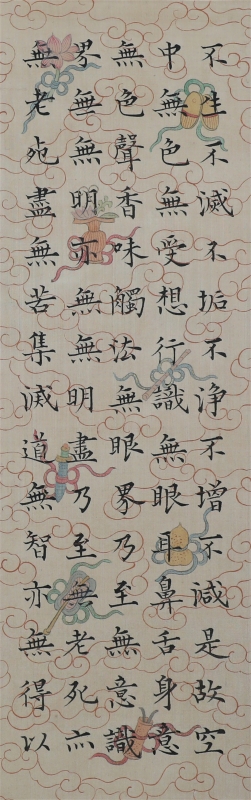 不生不滅不垢不淨不增不減是故空
中無色無受想行識無眼耳鼻舌身意
無色聲香味觸法無眼界乃至無意識
界無無明亦無無明盡乃至無老死亦
無老死盡無苦集滅道無智亦無得以